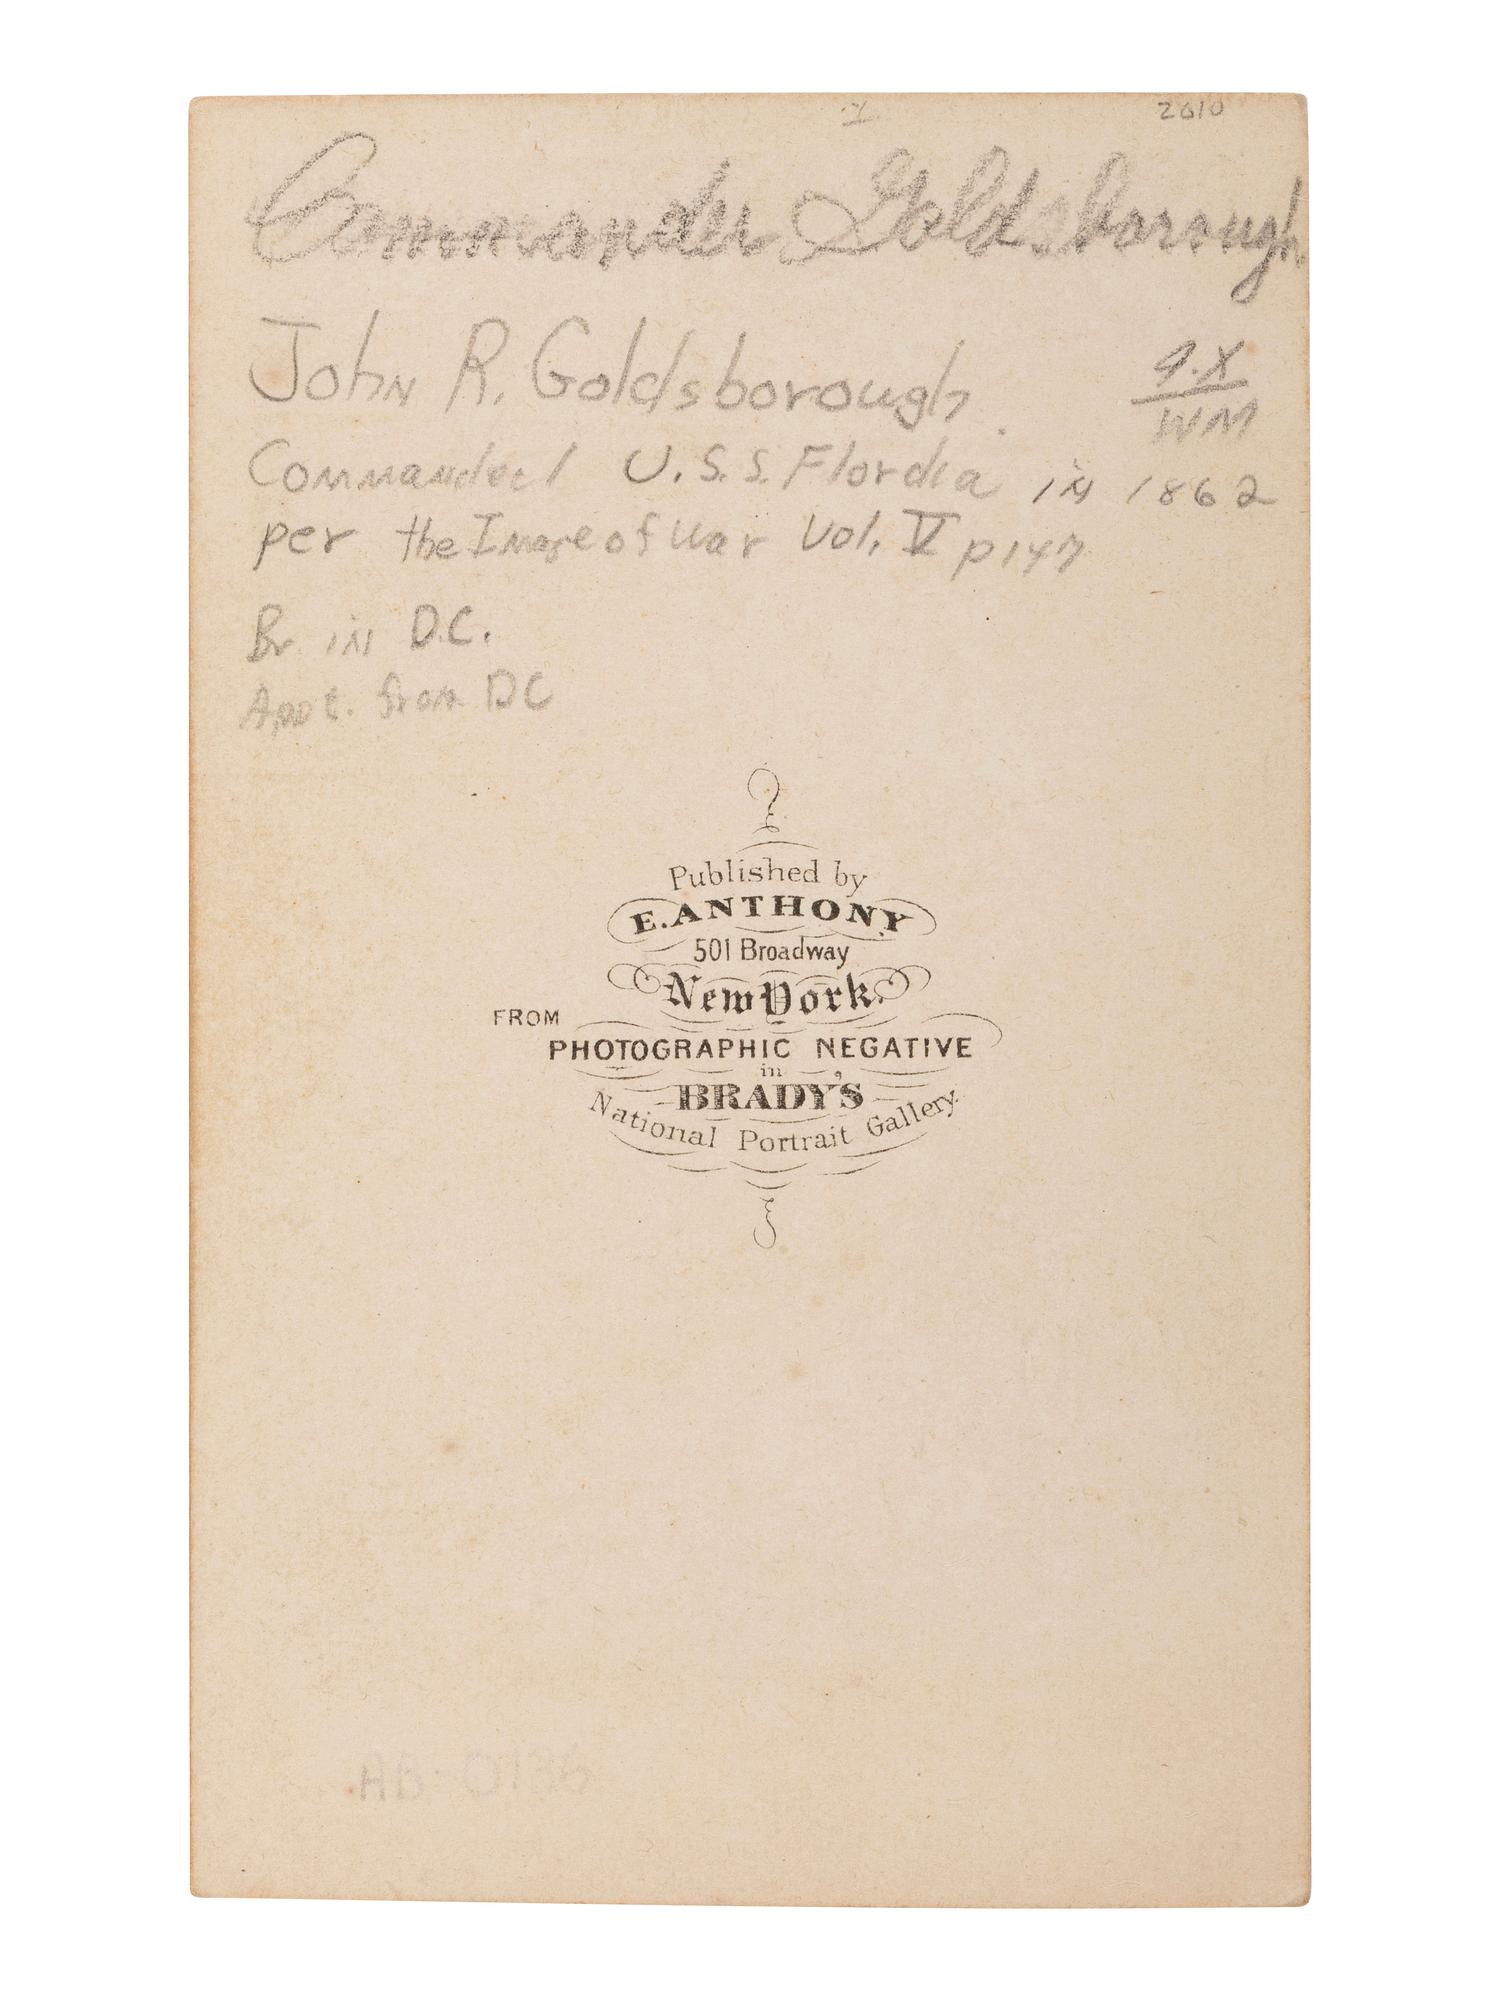 2610
Commander Goldsborough
John R. Goldsborough
WM
Commanded U.S.S. Flordia in 1862
per the Image of War Vol. V p 147
Br in D.C.
Appt. from DC
Published by
E. ANTHONY
501 Broadway
New York.
FROM
PHOTOGRAPHIC NEGATIVE
in
BRADY'S
National Portrait Gallery.
AB-0186